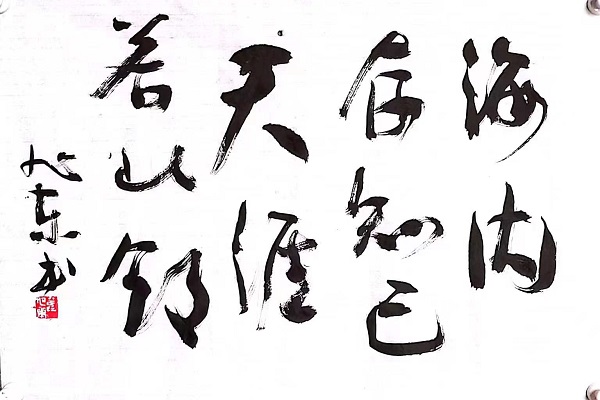 海内
存知己
天涯
若比邻
旭东书